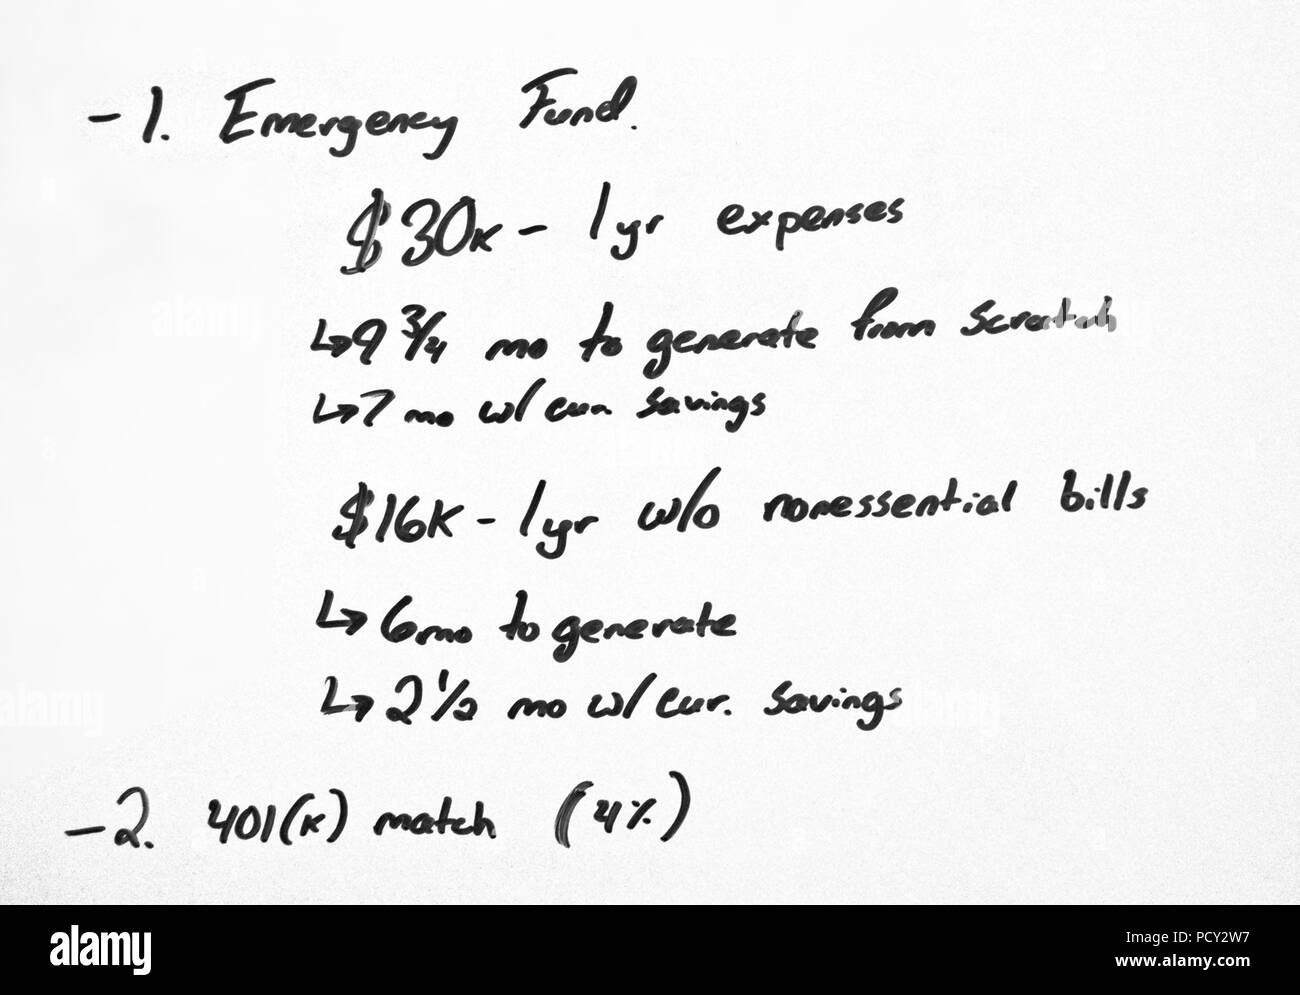 - 1. Emergency Fund.
$30k - 1 yr expenses
↳ 9 3/4 mo to generate from scratch
↳ 7 mo w/ curr. savings
$16K - 1 yr w/o nonessential bills
↳ 6 mo to generate
↳ 2 1/2 mo w/ cur. savings
- 2. 401(k) match (4%)
alamy
alamy
alamy
alamy
alamy
Image ID: PCY2W7
www.alamy.com